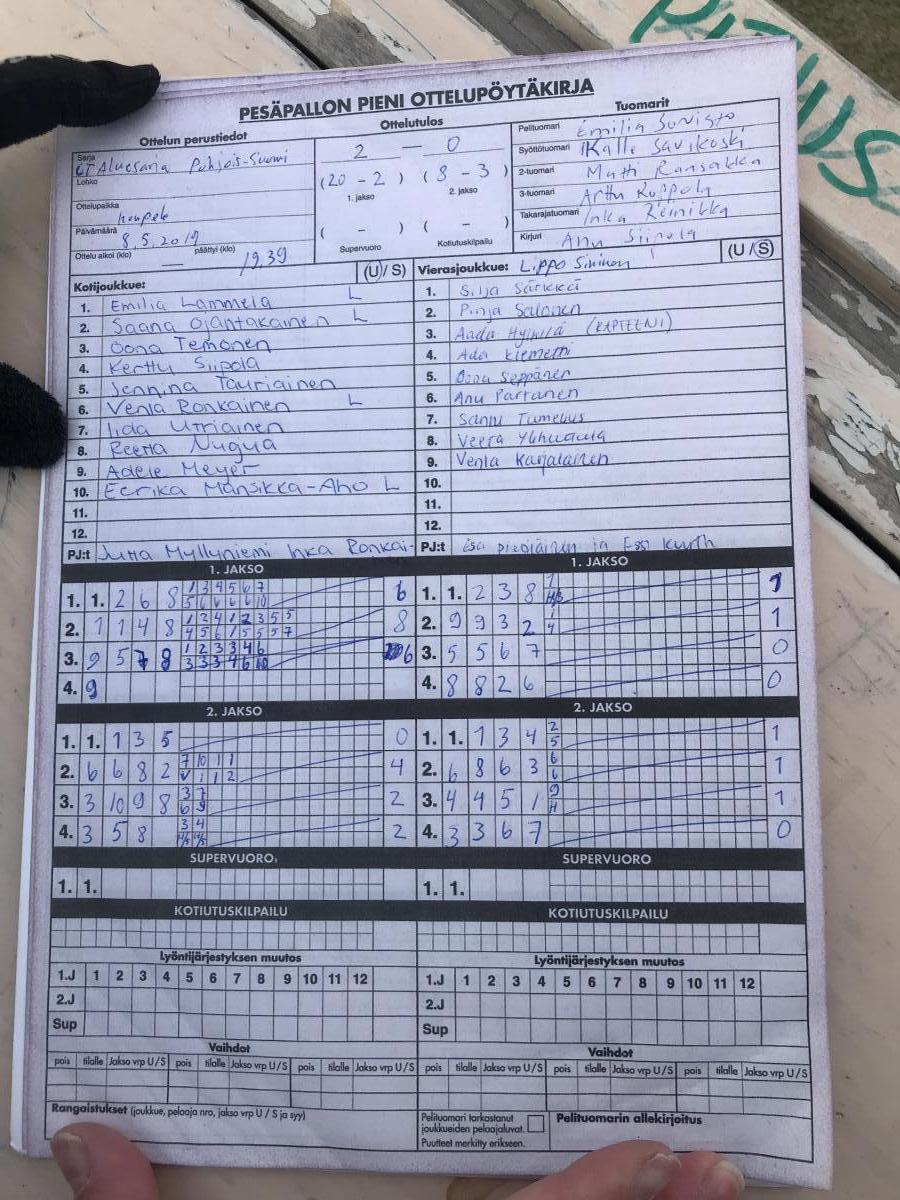 PITUUS
PESÄPALLON PIENI OTTELUPÖYTÄKIRJA
Ottelun perustiedot
Sarja
Aluesarja Pohjois-Suomi
Lohko
Ottelupaikka
haupek
Päivämäärä
8.5.2019
Ottelu alkoi (klo) päättyi (klo) 19.39
Ottelutulos
2 — 0
(20 - 2) (8 - 3)
1. jakso 2. jakso
( - ) ( - )
Supervuoro Kotiutuskilpailu
Tuomarit
Pelituomari Emilia
Syöttötuomari Kalle Savikoski
2-tuomari Matti
3-tuomari Arttu
Takarajatuomari Inka Reinikka
Kirjuri Anu Siipola
Kotijoukkue: (U/S)
1. Emilia Lammela L
2. Saana Ojantakainen L
3. Oona Temonen
4. Kerttu Siipola
5. Jennina Tauriainen
6. Venla Ronkainen L
7. Iida Utriainen
8. Reetta
9. Adele Meyer
10. Eerika Mansikka-Aho L
11.
12.
PJ:t Jutta Myllyniemi Inka Ronkai-
Vierasjoukkue: Lippo Sininen (U/S)
1. Silja Särkkä
2. Pinja Salonen
3. Aada (KAPTEENI)
4. Ada Klemetti
5. Oona Seppänen
6. Anu Partanen
7. Sanni Tumelius
8. Veera
9. Venla Karjalainen
10.
11.
12.
PJ:t Esa ja Essi Kurth
1. JAKSO
1. 1. 2 6 8 6
1 3 4 5 6 7
5 6 6 6 6 10
2. 1 1 4 8 8
1 2 4 1 2 3 5 5
4 5 6 1 5 5 5 7
3. 9 5 7 8 6
1 2 3 3 4 6
3 3 3 4 6 10
4. 9
1. JAKSO
1. 1. 2 3 8 1
2. 9 9 3 2 1
3. 5 5 6 7 0
4. 8 8 2 6 0
2. JAKSO
1. 1. 1 3 5 0
2. 6 6 8 2 4
7 10 1 1
V 1 1 2
3. 3 10 9 8 2
3 7
6 9
4. 3 5 8 2
3 4
2. JAKSO
1. 1. 1 3 4 1
2
5
2. 6 8 6 3 1
6
6
3. 4 4 5 1 1
9
4. 3 3 6 7 0
SUPERVUORO
1. 1.
SUPERVUORO
1. 1.
KOTIUTUSKILPAILU
KOTIUTUSKILPAILU
Lyöntijärjestyksen muutos
1.J 1 2 3 4 5 6 7 8 9 10 11 12
2.J
Sup
Lyöntijärjestyksen muutos
1.J 1 2 3 4 5 6 7 8 9 10 11 12
2.J
Sup
Vaihdot
pois tilalle Jakso vrp U/S pois tilalle Jakso vrp U/S pois tilalle Jakso vrp U/S
Vaihdot
pois tilalle Jakso vrp U/S pois tilalle Jakso vrp U/S pois tilalle Jakso vrp U/S
Rangaistukset (joukkue, pelaaja nro, jakso vrp U / S ja syy)
Pelituomari tarkastanut
joukkueiden pelaajaluvat.
Puutteet merkitty erikseen.
Pelituomarin allekirjoitus